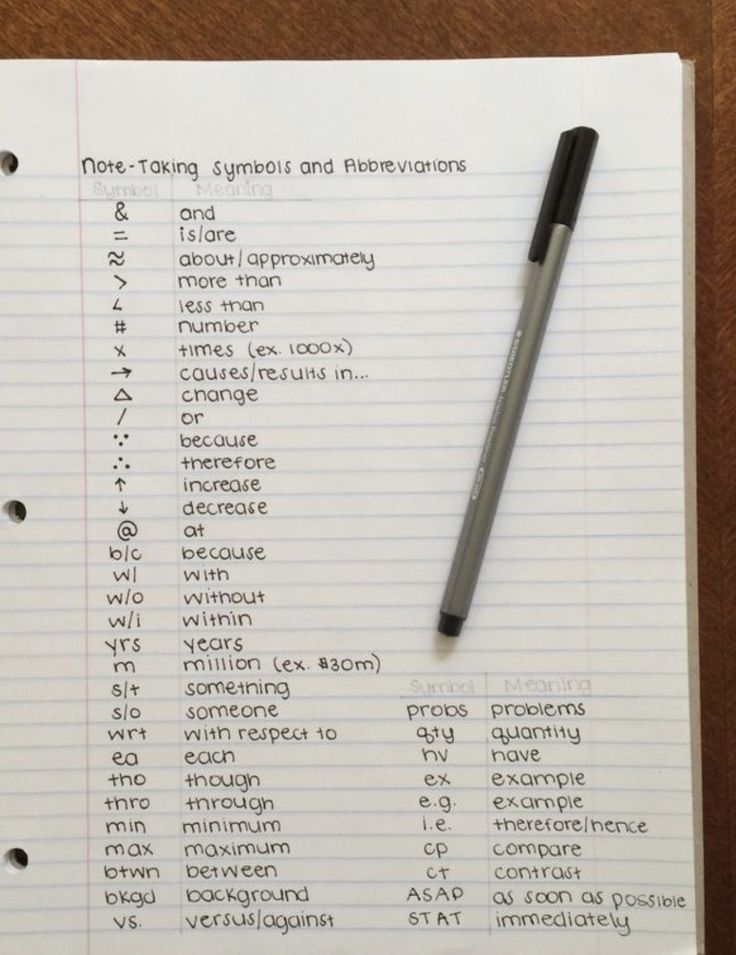 Note-Taking Symbols and Abbreviations
Symbol Meaning
& and
= is/are
≈ about/approximately
> more than
< less than
# number
x times (ex. 1000x)
→ causes/results in...
△ change
/ or
∵ because
∴ therefore
↑ increase
↓ decrease
@ at
b/c because
w/ with
w/o without
w/i within
yrs years
m million (ex. $30m)
s/t something
s/o someone
wrt with respect to
ea each
tho though
thro through
min minimum
max maximum
btwn between
bkgd background
vs. versus/against
Symbol Meaning
probs problems
qty quantity
hv have
ex example
e.g. example
i.e. therefore/hence
cp compare
ct contrast
ASAP as soon as possible
STAT immediately
STAEDTLER